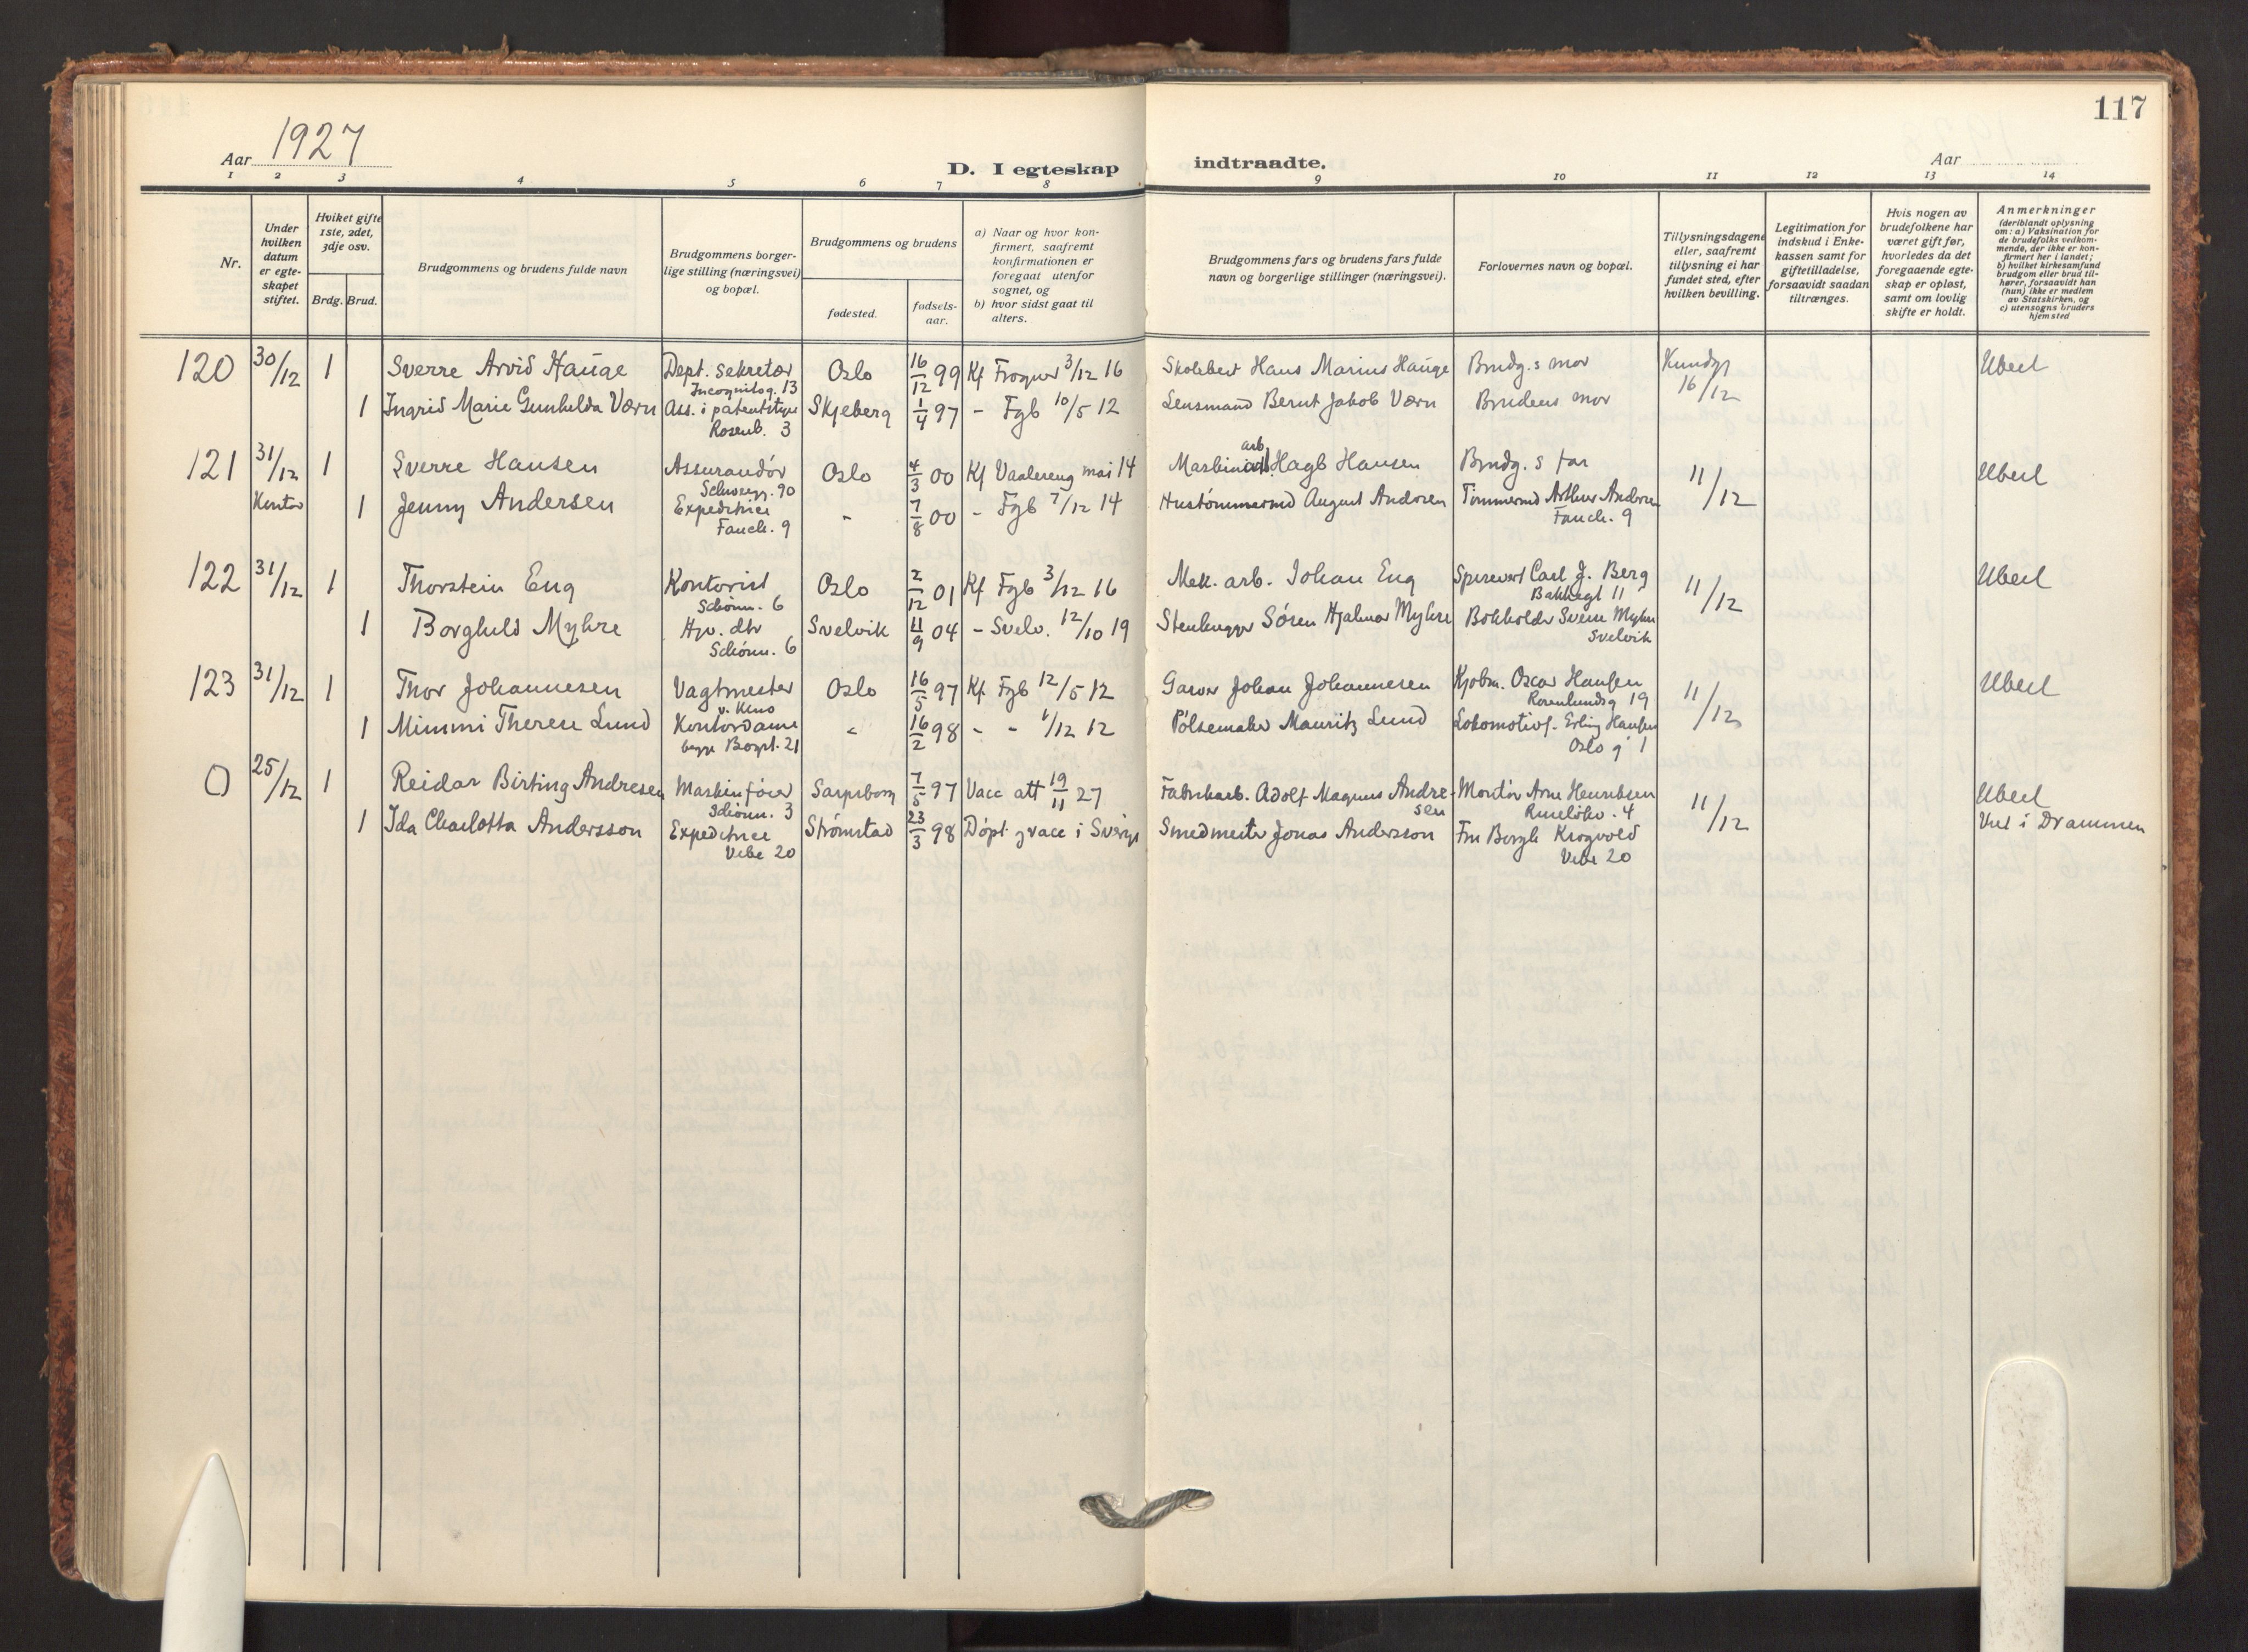 117
Aar 1927
D. I egteskap indtraadte.
Aar
1 2 3 4 5 6 7 8 9 10 11 12 13 14
Nr.
Under
hvilken
datum
er egte-
skapet
stiftet.
Hviket gifte
1ste, 2det,
3dje osv.
Brdg. Brud.
Brudgommens og brudens fulde navn
Brudgommens borger-
lige stilling (næringsvei)
og bopæl.
Brudgommens og brudens
fødested.
fødsels-
aar.
a) Naar og hvor kon-
firmert, saafremt
konfirmationen er
foregaat utenfor
sognet, og
b) hvor sidst gaat til
alters.
Brudgommens fars og brudens fars fulde
navn og borgerlige stillinger (næringsvei).
Forlovernes navn og bopæl.
Tillysningsdagene
eller, saafremt
tillysning ei har
fundet sted, efter
hvilken bevilling.
Legitimation for
indskud i Enke-
kassen samt for
giftetilladelse,
forsaavidt saadan
tiltrænges.
Hvis nogen av
brudefolkene har
været gift før,
hvorledes da det
foregaaende egte-
skap er opløst,
samt om lovlig
skifte er holdt.
Anmerkninger
(deriblandt oplysning
om: a) Vaksination for
de brudefolks vedkom-
mende, der ikke er kon-
firmert her i landet;
b) hvilket kirkesamfund
brudgom eller brud til-
hører, forsaavidt han
(hun) ikke er medlem
av Statskirken, og
c) utensogns bruders
hjemsted
120 30/12 1 Sverre Arvid Hauge Dept. sekretær Oslo 16/12 99 Kf Frogner 3/12 16 Hans Marius Hauge Brudg.s mor 16/12 Uberl
Incognitog. 13
1 Ingrid Marie Gunhilda Værn Ass. i Skjeberg 1/4 97 - Fgb 10/5 12 Lensmand Bernt JakobVærn Brudens mor
Rosenb. 3
121 31/12 1 Sverre Hansen Assurandør Oslo 4/3 00 Kf Vaalereng mai 14 Maskinarb. Hagb Hansen Brudg. s far 11/12 Uberl
90
Kontor 1 Jenny Andersen Expeditrice - 7/8 00 - Fgb 7/12 14 August Andersen Arthur Andersen
Fauch. 9 Fauch. 9
122 31/12 1 Thorstein Eng Kontorist Oslo 2/12 01 Kf Fgb 3/12 16 Mek. arb. Johan Eng Carl J. Berg 11/12 Uberl
Schønn. 6 11
1 Borghild Myhre Hjv. dtr Svelvik 11/9 04 - Svelv. 12/10 19 Stenhugger Søren Hjalmar Myhre Bokholder Sverre Myhre
Schønn. 6 Svelvik
123 31/12 1 Thor Johannesen Vagtmester Oslo 16/5 97 Kf Fgb 12/5 12 Garver Johan Johannesen Kjøbm. Oscar Hansen 11/12 Uberl
v. Kino Rosenlundsg 19
1 Mimmi Therese Lund Kontordame " 16/2 98 - - 1/12 12 Pølsemaker Mauritz Lund Lokomotivf. Erling Hansen
begge 21 Oslo g 1
0 25/12 1 Reidar Birting Andresen Maskinfører Sarpsborg 7/5 97 Vacc att 19/11 27 Fabrikarb. Adolf Magnus Andre- Montør Arne Henriksen 11/12 Uberl
Schønn. 3 sen 4
1 Ida Charlotta Andersson Expeditrice Strømstad 23/3 98 Døpt g vacc i Sverige Smedmester Jonas Andersson Fru Borgh Krogvold Viet i Drammen
Vibe 20 Vibe 20